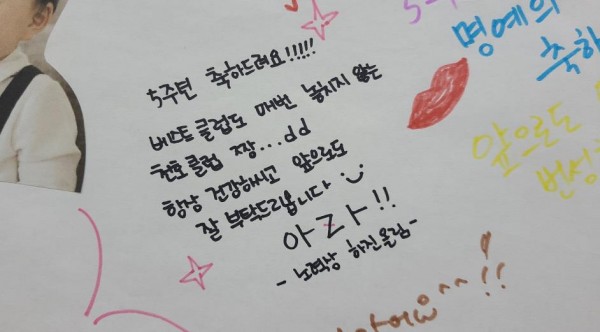 5주년 축하드려요!!!!!
베스트클럽도 매번 놓치지 않는
천호클럽 짱...dd
항상 건강하시고 앞으로도
잘 부탁드립니다
아자!!
- 노역상 하진올림 -
명예의
축하
앞으로도
번성